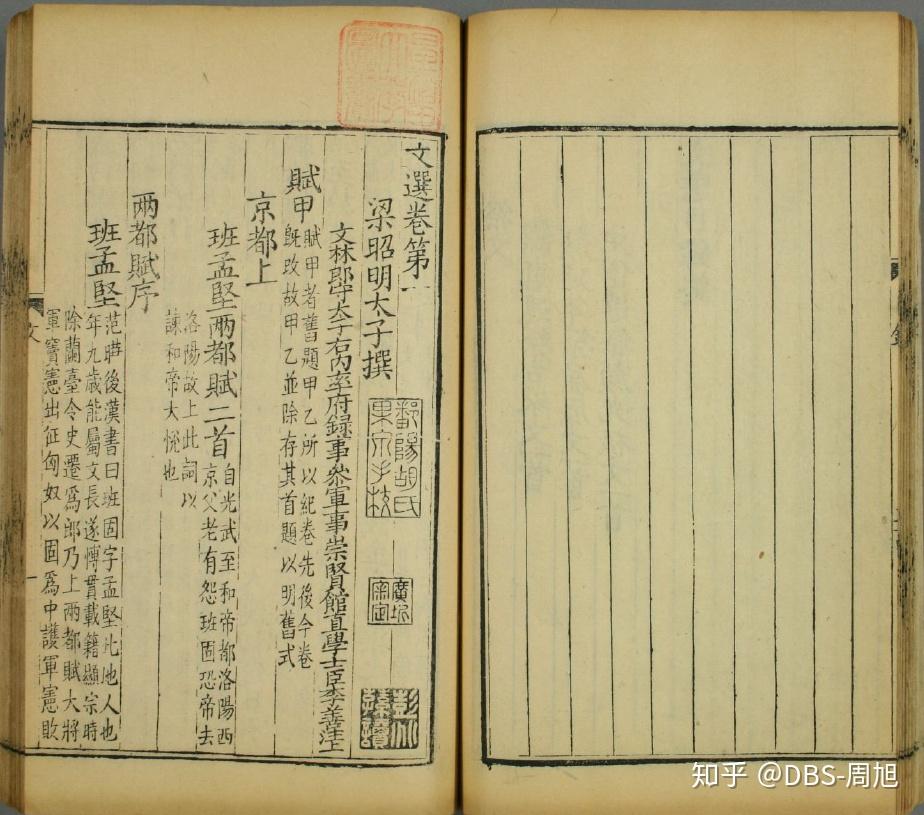 文選卷第一
梁昭明太子撰
鄱陽胡氏
果泉手校
廣圻
審定
文林郎守太子右內率府録事叅軍事崇賢館直學士臣李善注上
賦甲
賦甲者舊題甲乙所以紀卷先後今卷
旣改故甲乙並除存其首題以明舊式
京都上
班孟堅兩都賦二首
自光武至和帝都洛陽西
京父老有怨班固恐帝去
洛陽故上此詞以
諫和帝大悅也
兩都賦序
班孟堅
范曄後漢書曰班固字孟堅北地人也
年九歲能屬文長遂博貫載籍顯宗時
除蘭臺令史遷爲郎乃上兩都賦大將
軍竇憲出征匈奴以固爲中護軍憲敗
文
一
知乎 @DBS-周旭